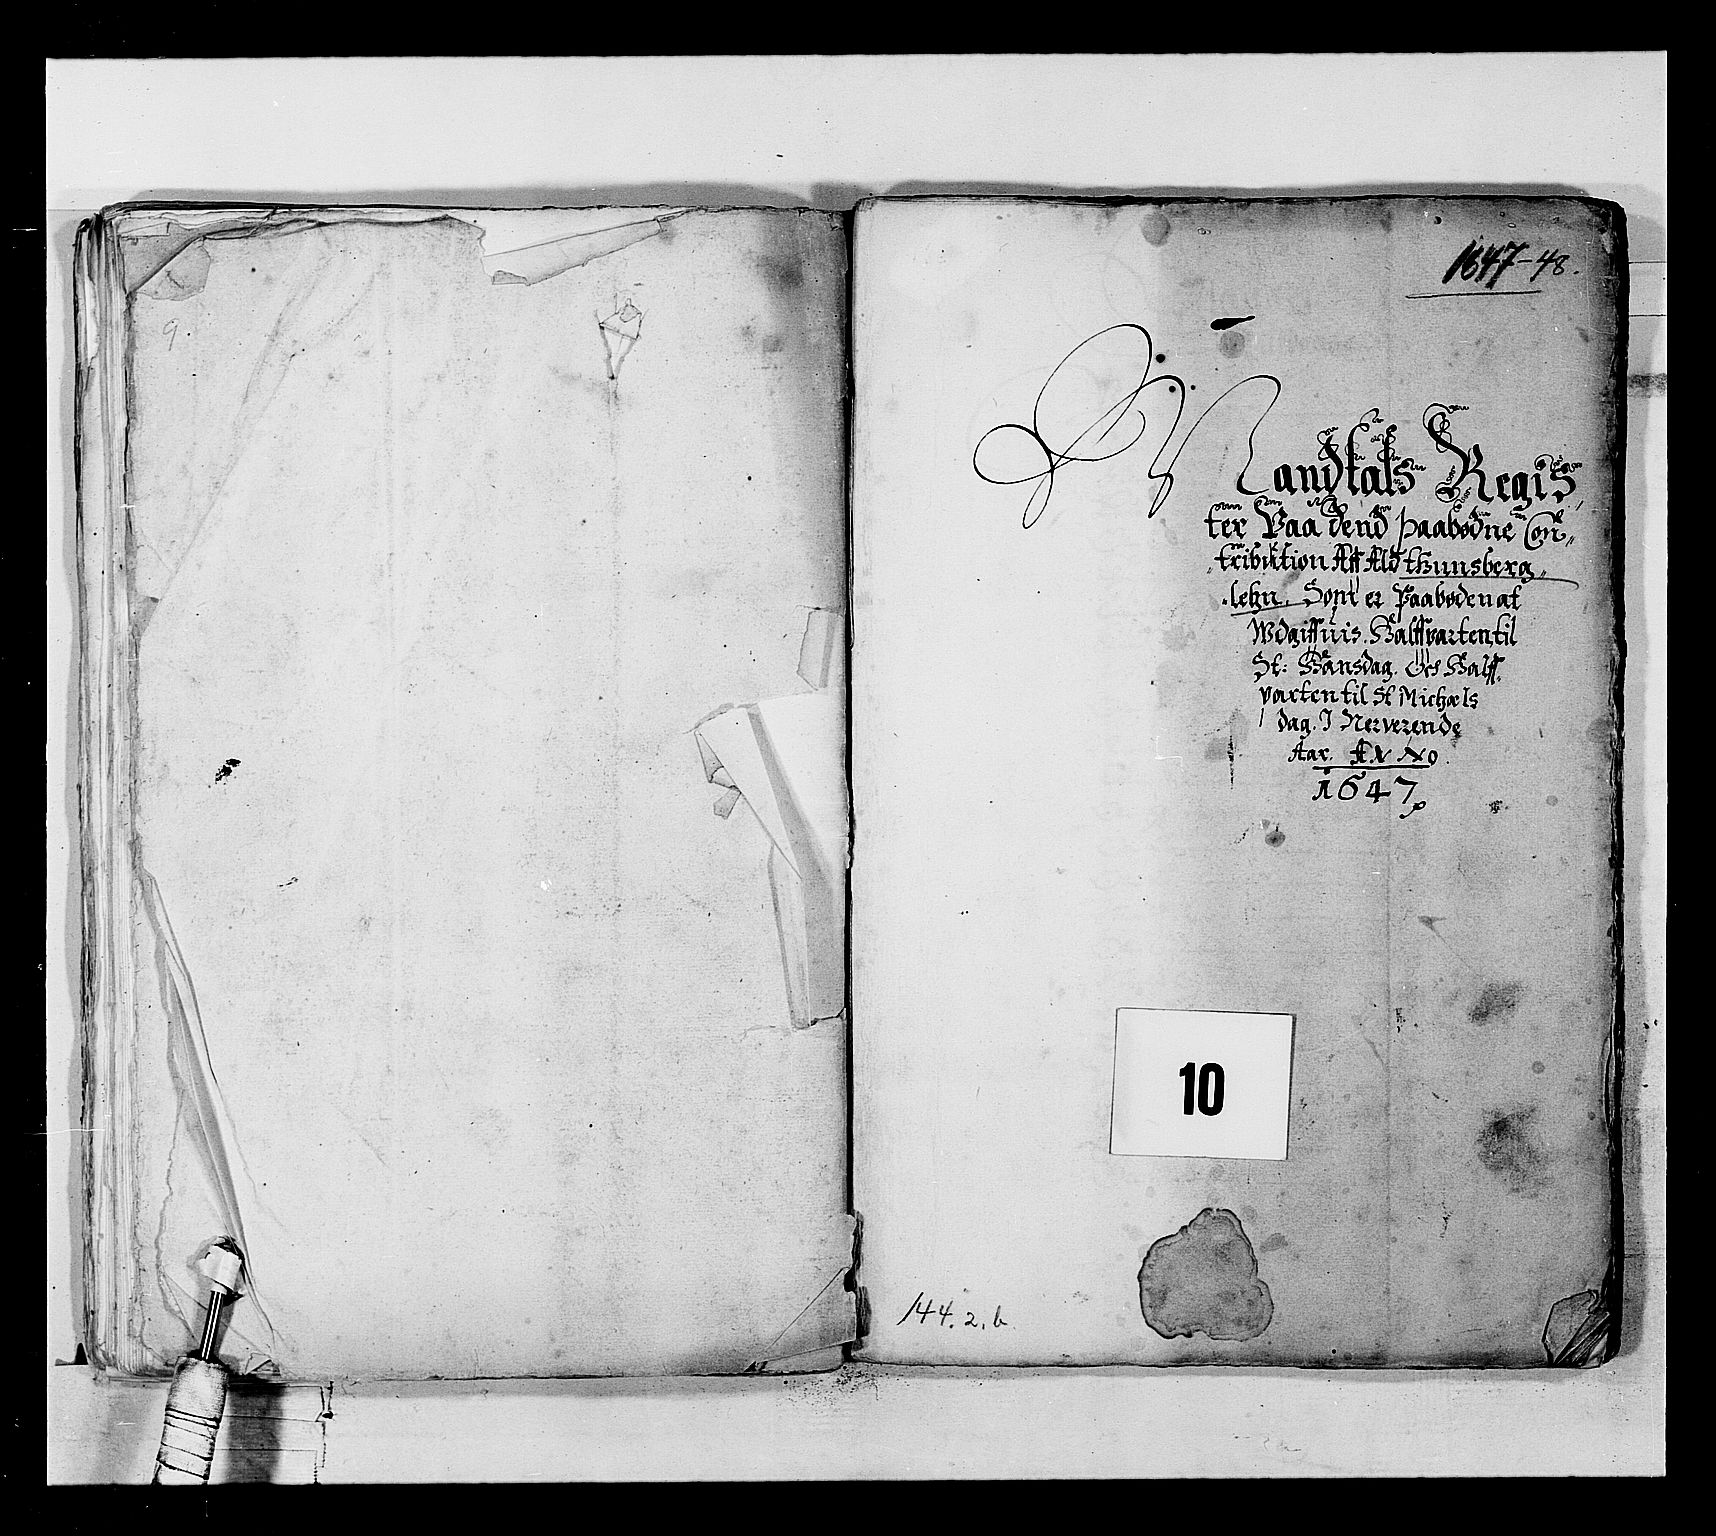 9
1647-48.
Mandtals Regis
ter Paa dend paabodne Con„
„tribution Aff Ald thunsberg„
„lehn. Som er Paaboden at
Wdgiffuis. Halffparten til
St: Hansdag. Och Halff„
parten til St Michæls
dag. I Nerverende
Aar. ANNo.
1647
10
144.2.b